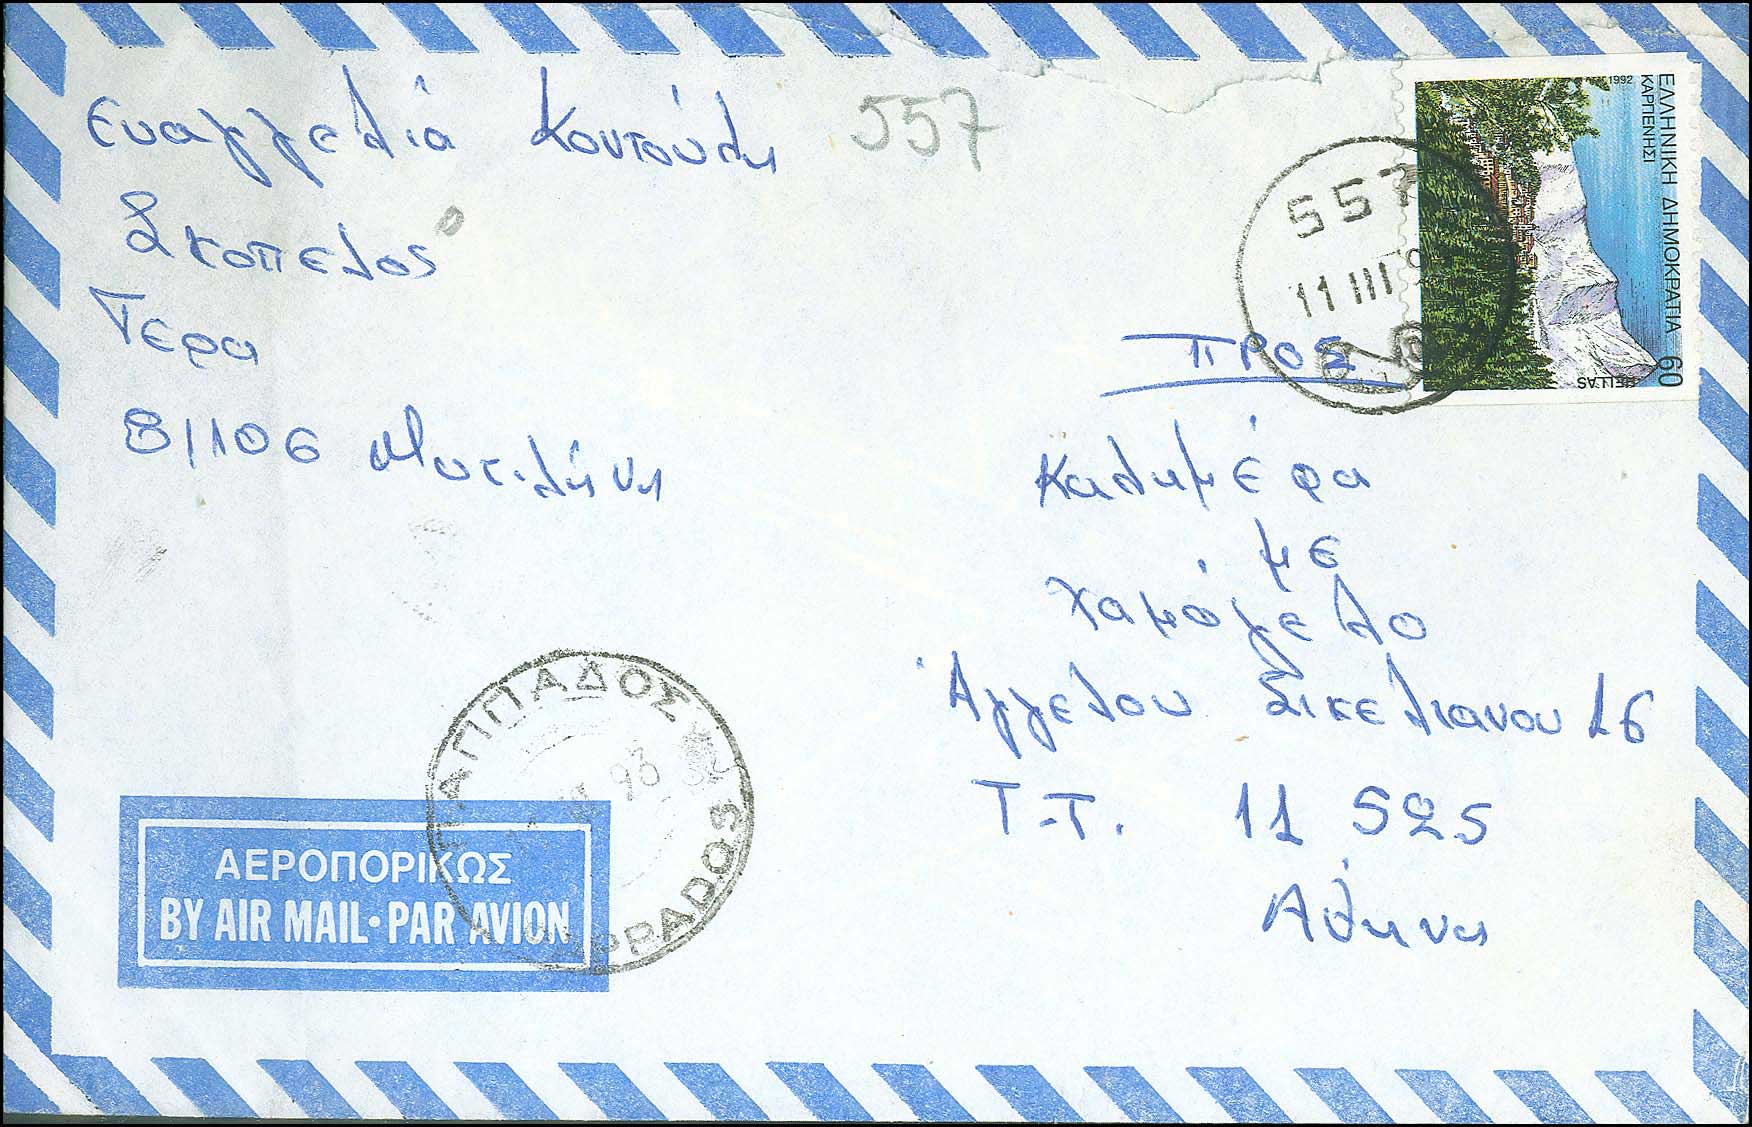 Ευαγγελία Κουτούλη
557
Σκοπελος
Γερα
81106 Μυτιλήνη
ΕΛΛΗΝΙΚΗ ΔΗΜΟΚΡΑΤΙΑ 60
ΚΑΡΠΕΝΗΣΙ
1992
HELLAS
557
11 III 9
ΠΡΟΣ
Καλημέρα
με
Χαμόγελο
Αγγελου Σικελιανου 16
Τ.Τ. 11 525
Αθηνα
ΠΑΠΠΑΔΟΣ
93
PAPPADOS
ΑΕΡΟΠΟΡΙΚΩΣ
BY AIR MAIL•PAR AVION